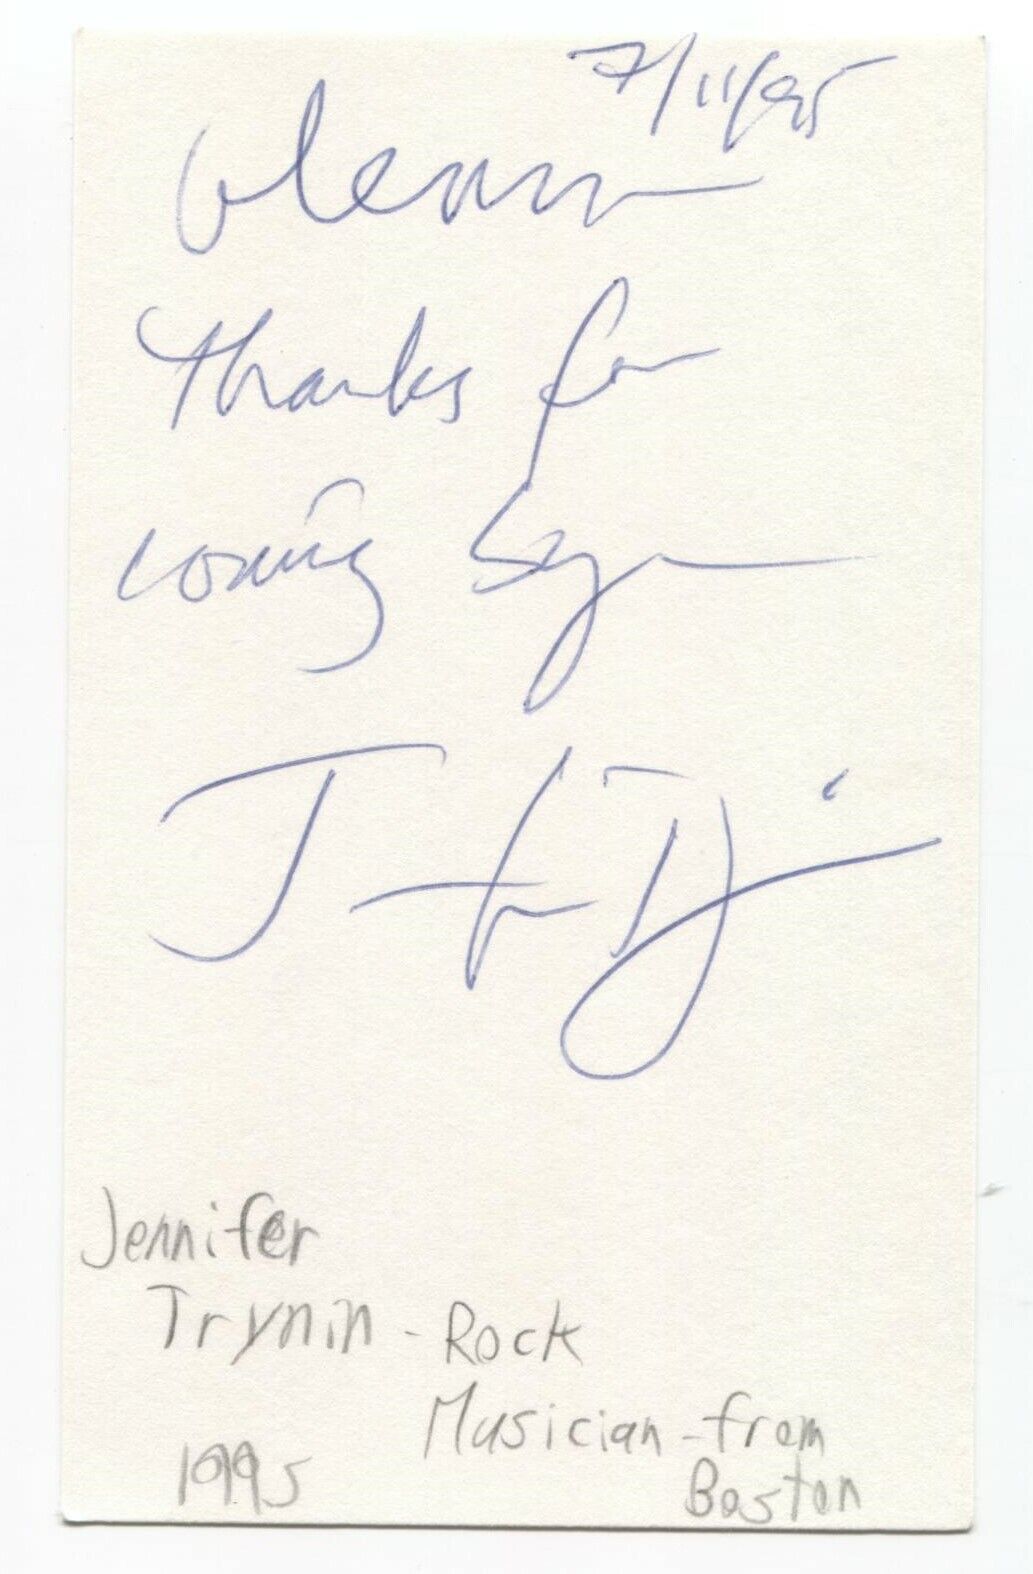 7/11/95
Glenn
thanks for
coming by
Jennifer
Trynin - Rock
Musician - from
1995 Boston